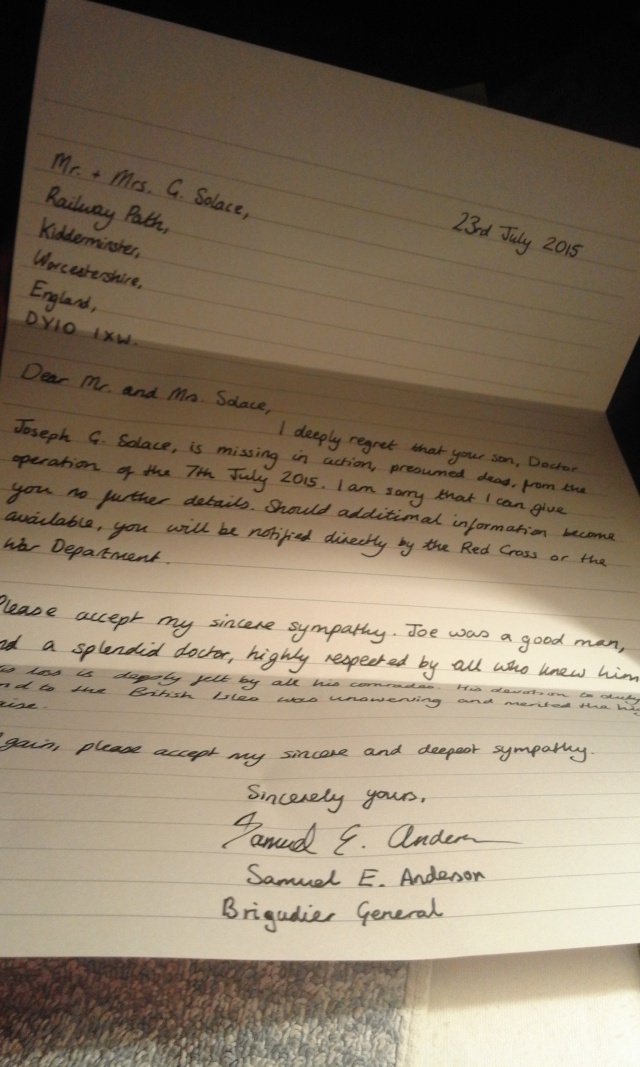 Mr. + Mrs. G. Solace,
23rd July 2015
Railway Path,
Kidderminster,
Worcestershire,
England,
DY10 1XW.
Dear Mr. and Mrs. Solace,
I deeply regret that your son, Doctor
Joseph G. Solace, is missing in action, presumed dead, from the
operation of the 7th July 2015. I am sorry that I can give
you no further details. Should additional information become
available, you will be notified directly by the Red Cross or the
War Department.
Please accept my sincere sympathy. Joe was a good man,
nd a splendid doctor, highly respected by all who knew him
is loss is deeply felt by all his comrades. His devotion to duty
nd to the British Isles was unswerving and merited the hi
aise.
gain, please accept my sincere and deepest sympathy.
Sincerely yours,
Samuel E. Anderson
Samuel E. Anderson
Brigadier General